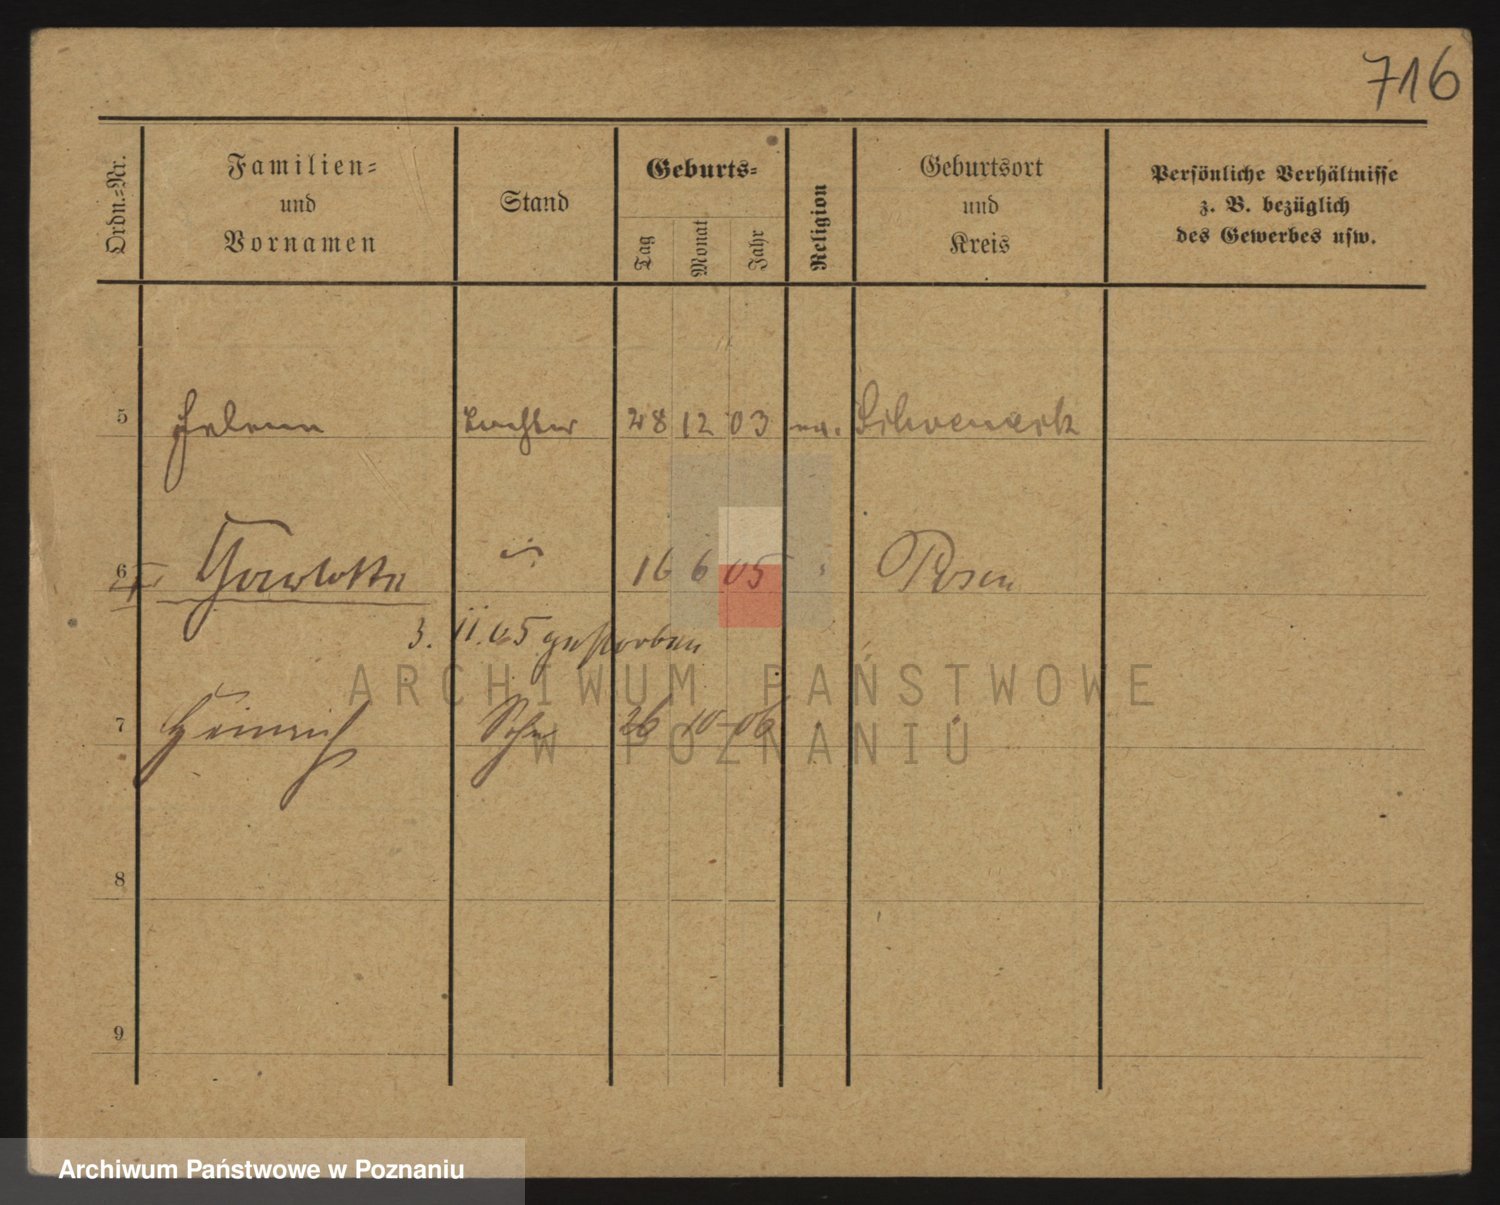 716
Ordn.=Nr.
Familien=
und
Vornamen
Stand
Geburts=
Tag
Monat
Jahr
Religion
Geburtsort
und
Kreis
Persönliche Verhältnisse
z. B. bezüglich
des Gewerbes usw.
5 Helene Tochter 28 12 03 ev.
6 16 6 05 " Posen
3. 11. 05 gestorben
7 Heinrich Sohn 26 10 06 " "
8
9
ARCHIWUM PAŃSTWOWE
W POZNANIU
Archiwum Państwowe w Poznaniu